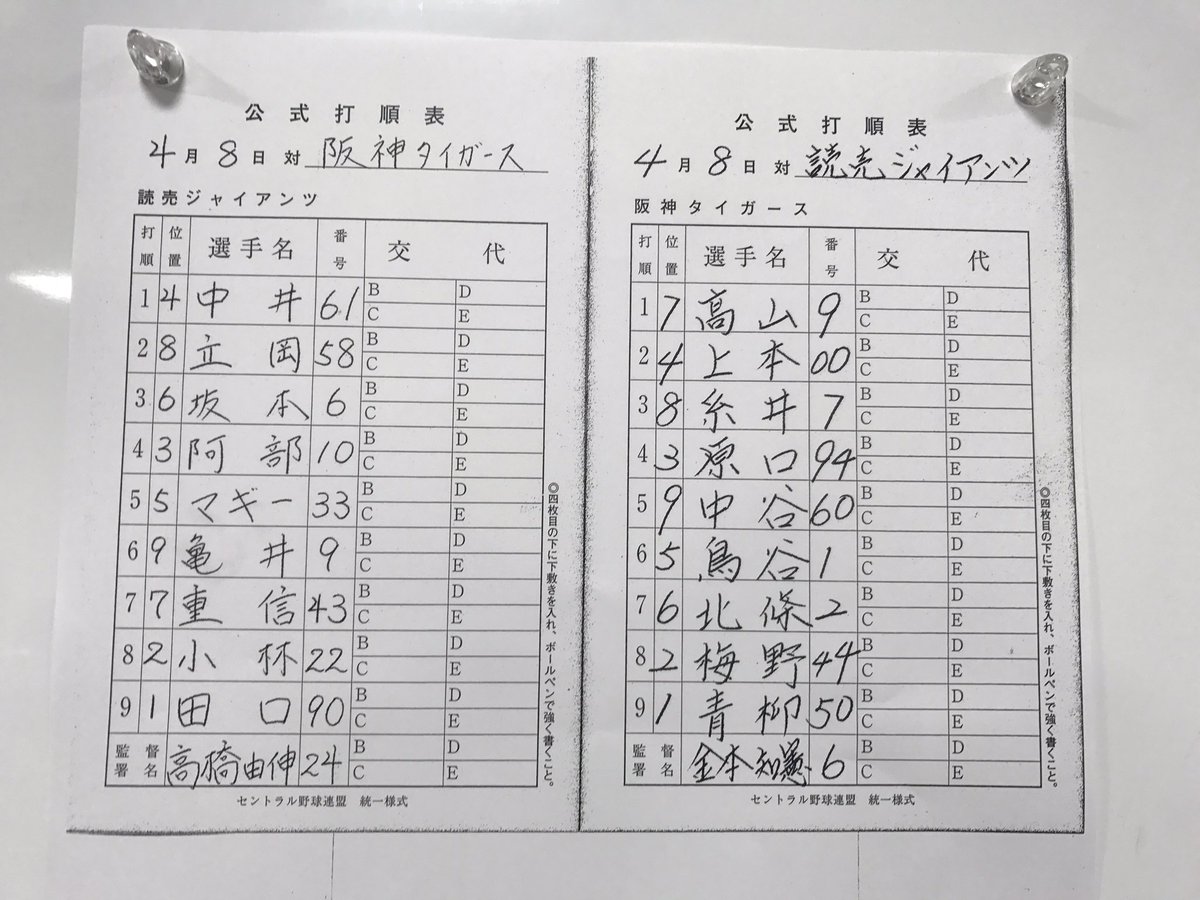 公式打順表
4月8日対 阪神タイガース
読売ジャイアンツ
打順 位置 選手名 番号 交代
1 4 中井 61 B D C E
2 8 立岡 58 B D C E
3 6 坂本 6 B D C E
4 3 阿部 10 B D C E
5 5 マギー 33 B D C E
6 9 亀井 9 B D C E
7 7 重信 43 B D C E
8 2 小林 22 B D C E
9 1 田口 90 B D C E
監督署名 高橋由伸 24 B D C E
セントラル野球連盟 統一様式
◎四枚目の下に下敷きを入れ、ボールペンで強く書くこと。
公式打順表
4月8日対 読売ジャイアンツ
阪神タイガース
打順 位置 選手名 番号 交代
1 7 高山 9 B D C E
2 4 上本 00 B D C E
3 8 糸井 7 B D C E
4 3 原口 94 B D C E
5 9 中谷 60 B D C E
6 5 鳥谷 1 B D C E
7 6 北條 2 B D C E
8 2 梅野 44 B D C E
9 1 青柳 50 B D C E
監督署名 金本知憲 6 B D C E
セントラル野球連盟 統一様式
◎四枚目の下に下敷きを入れ、ボールペンで強く書くこと。